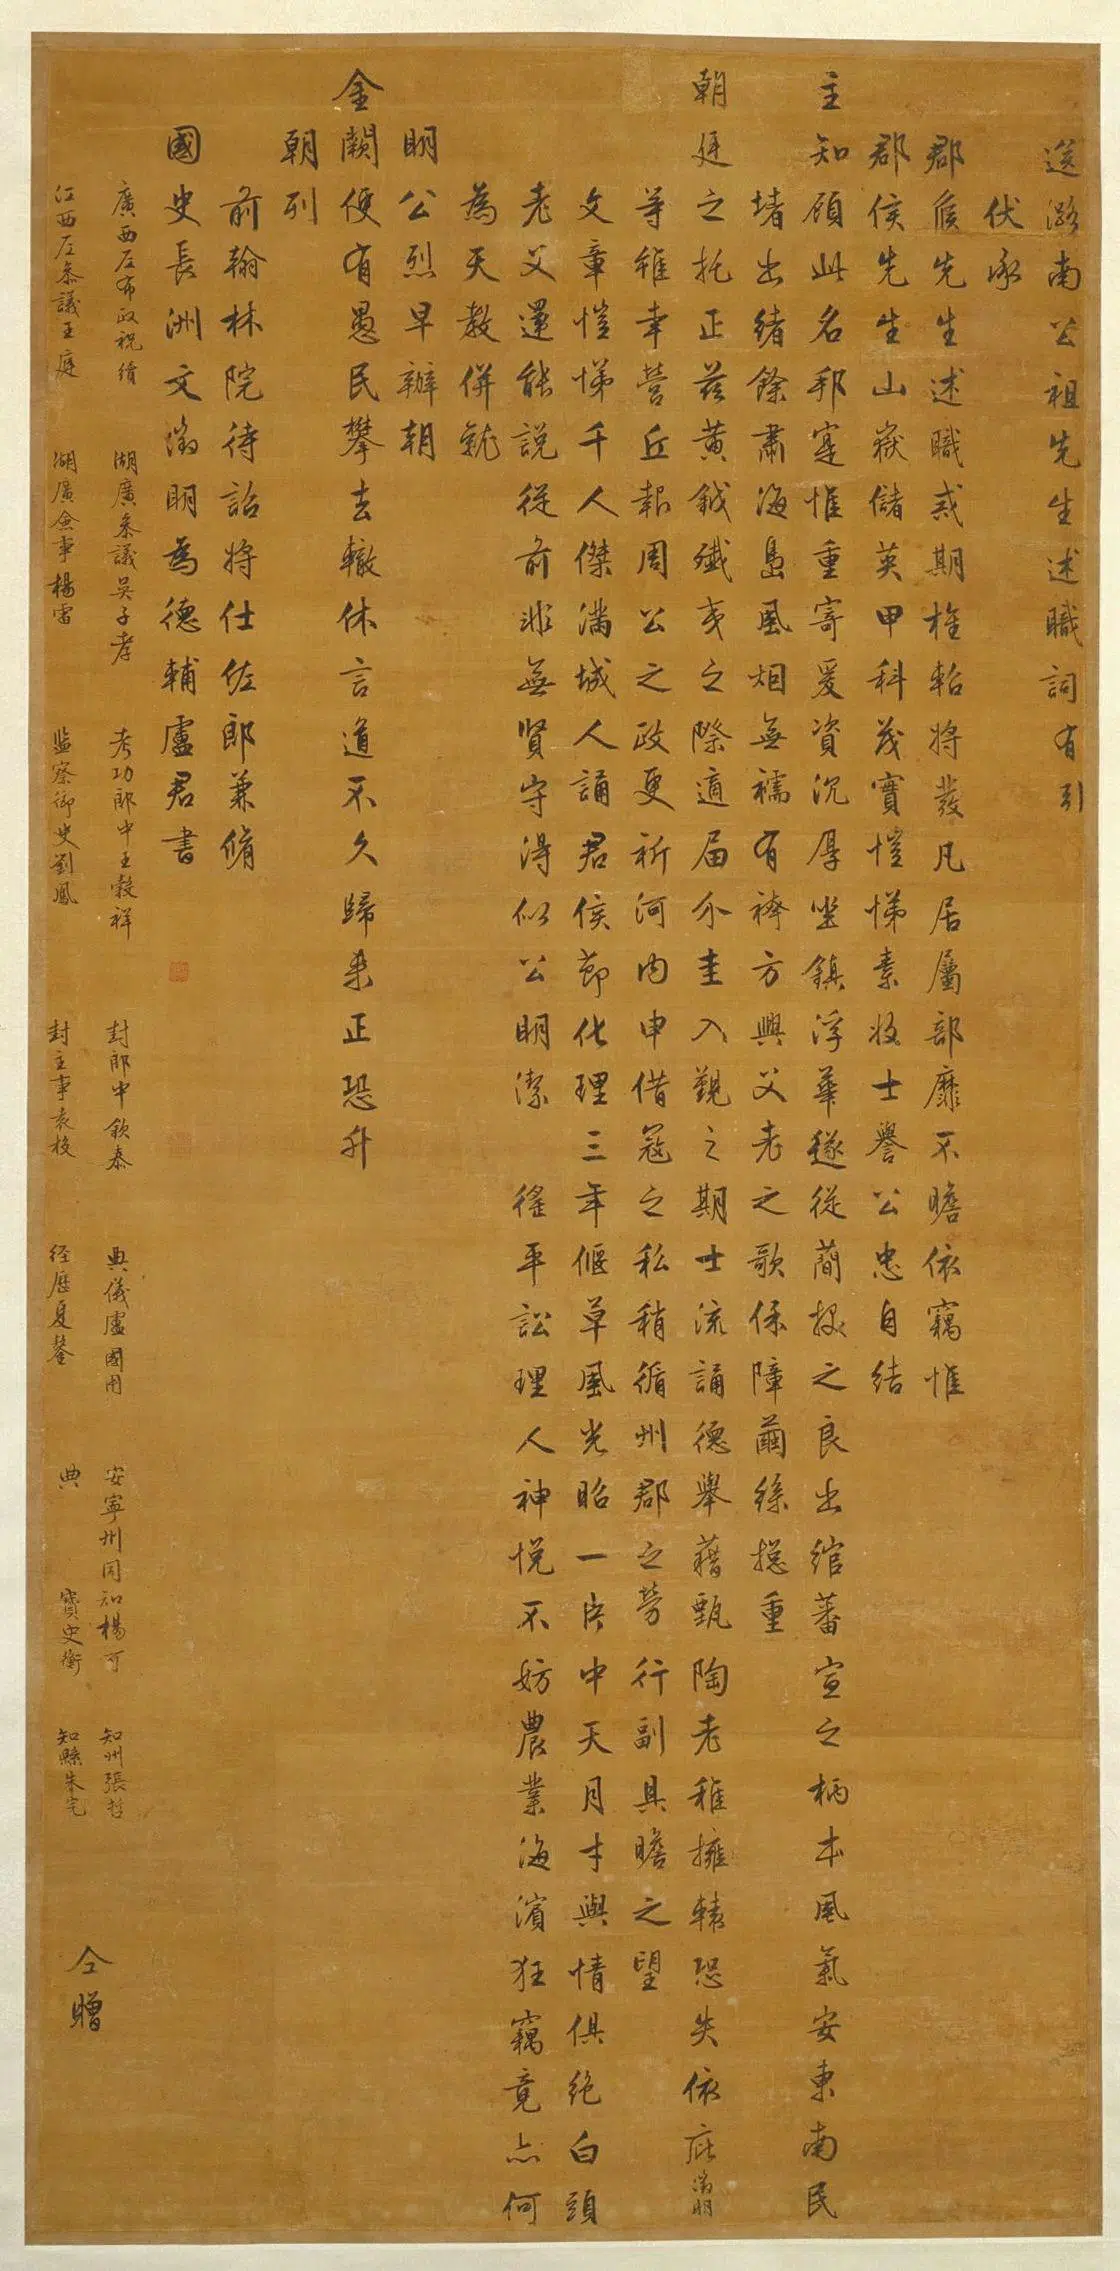 送潞南公祖先生述職詞有引
伏承
郡侯先生述職戒期旌軺將發凡居屬部靡不瞻依竊惟
郡侯先生山嶽儲英甲科茂實愷悌素收士譽公忠自結
主知顧此名邦寔惟重寄爰資沉厚坐鎮浮華遂從蘭掖之良出綰蕃宣之柄本風氣安東南民
堵出緒餘肅海島風烟無襦有袴方興父老之歌保障繭絲揔重
朝廷之托正茲黃鉞殲夷之際適届介圭入覲之期士流誦德舉藉甄陶老稚擁轅恐失依庇徵明
等雖幸營丘報周公之政更祈河內申借寇之私稍循州郡之勞行副具瞻之望
文章愷悌千人傑滿城人誦君侯節化理三年偃草風光昭一片中天月才與情俱絕白頭
老父還能說從前非無賢守得似公明潔 徭平訟理人神悅不妨農業海濱狂竊竟亦何
為天教併就
明公烈早辦朝
金闕便有愚民攀去轍休言道不久歸來正恐升
朝列
前翰林院待詔將仕佐郎兼脩
國史長洲文徵明為德輔盧君書
廣西左布政祝續 湖廣參議吳子孝 考功郎中王穀祥 封郎中欽泰 典儀盧國用 安寧州同知楊可 知州張哲
江西左參議王庭 湖廣僉事楊雷 監察御史劉鳳 封主事袁校 經歷夏鍪 典寶史衡 知縣朱宅
仝贈